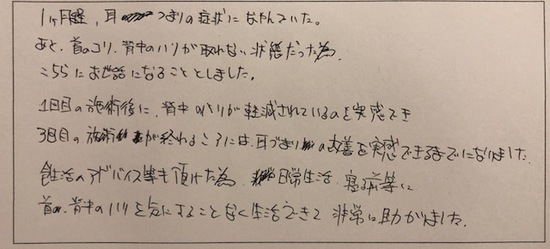 1ヶ月程、耳つまりの症状になやんでいた。
あと、首のコリ、背中のハリが取れない状態だった為、
こちらにお世話になることとしました。
1日目の施術後に、背中のハリが軽減されているのを実感でき
3日目の施術が終わるころには、耳づまりの改善を実感できるまでになりました。
食生活のアドバイス等も頂けた為、日常生活、寝る前等に
首、背中のハリを気にすることなく生活できて非常に助かりました。